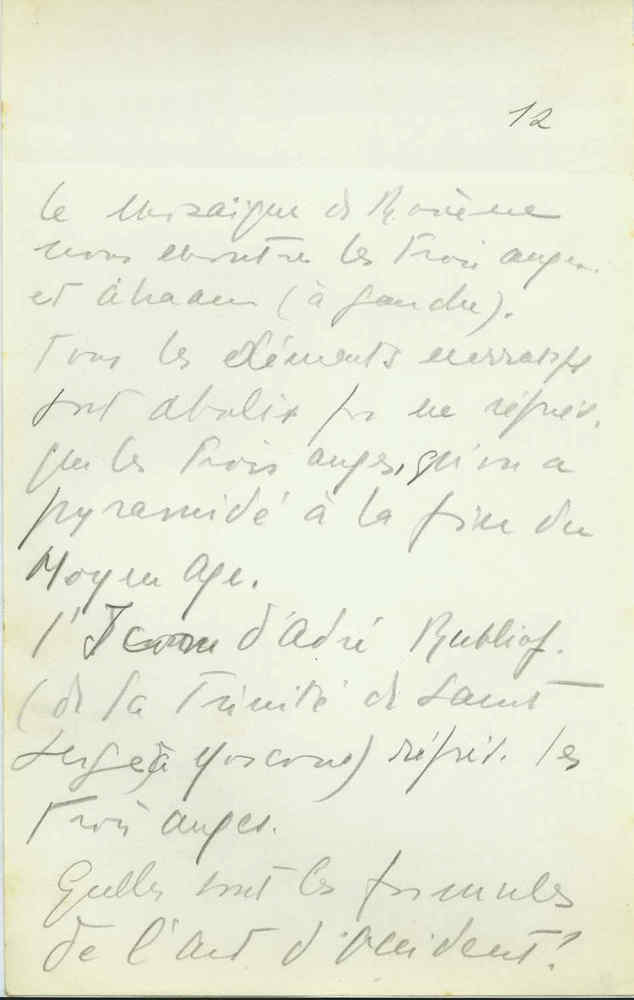 12
le mosaïque de Ravenne
nous montre les trois anges
et Abraam (à gauche).
Tous les éléments narratifs
sont abolis représ.
que les trois anges, qu'on a
pyramidé à la fin du
Moyen Age.
l'Icone d'Adré Rubliof.
(de la Trinité de Saint
Serge à Moscou) représ. les
trois anges.
Quelles sont les formules
de l'Art d'Occident?